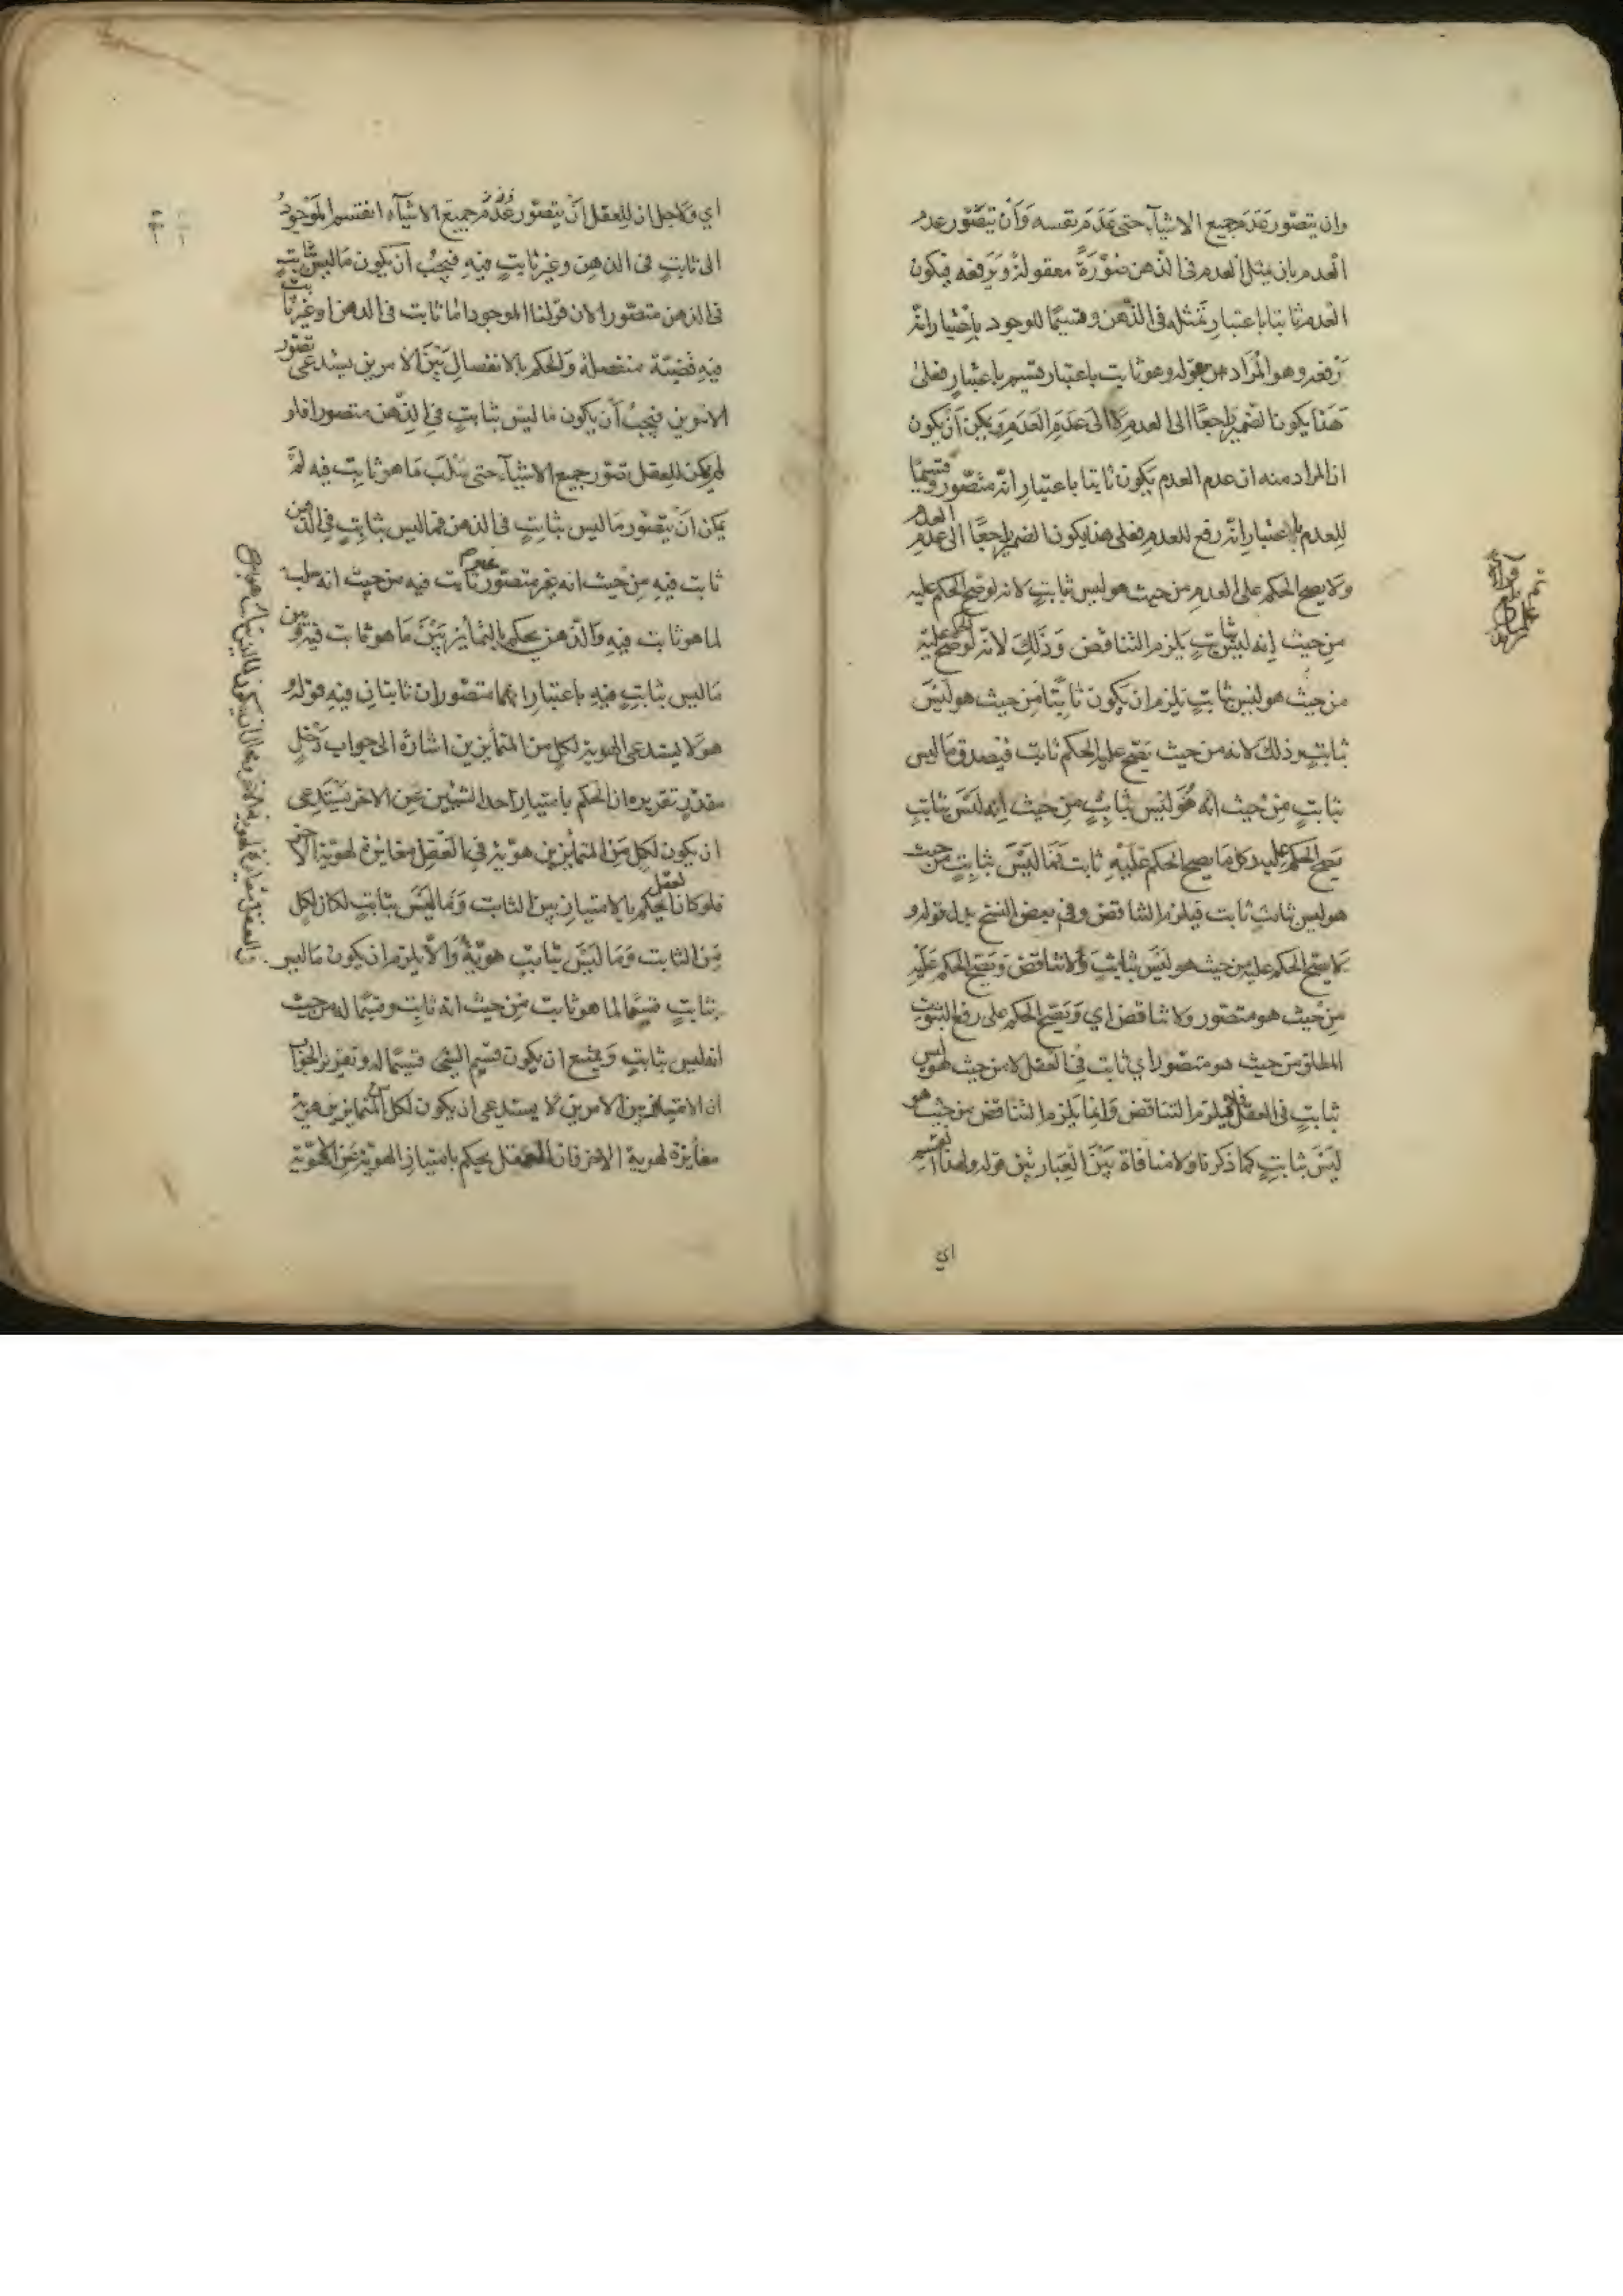 وان يتصور عدم جميع الاشيآء حتى عدم نفسه وان يتصور عدم
العدم بان يمثل العدم فى الذهن صورة معقولة ويرفعه فيكون
العدم ثابتا باعتبار تمثله فى الذهن وقسيما للوجود باعتبار انه
رفعه وهو المراد من قوله وهو ثابت باعتبار قسيم باعتبار فعلى
هذا يكون الضمير راجعا الى العدم لا الى عدم العدم ويمكن ان يكون
ان المراد منه ان عدم العدم يكون ثابتا باعتبار انه متصور وقسيما
للعدم باعتبار انه رفع للعدم فعلى هذا يكون الضمير راجعا الى عدم العدم
ولا يصح الحكم على العدم من حيث هو ليس بثابت لانه لو صح الحكم عليه
من حيث انه ليس بثابت يلزم التناقض وذلك لانه لو صح الحكم عليه
من حيث هو ليس بثابت يلزم ان يكون ثابتا من حيث هو ليس
بثابت وذلك لانه من حيث يصح عليه الحكم ثابت فيصدق ما ليس
بثابت من حيث انه هو ليس بثابت من حيث انه ليس بثابت
يصح الحكم عليه وكل ما يصح الحكم عليه ثابت فما ليس بثابت من حيث
هو ليس بثابت ثابت فيلزم التناقض وفى بعض النسخ بدل قوله و
لا يصح الحكم عليه من حيث هو ليس بثابت ولا تناقض ويصح الحكم عليه
من حيث هو متصور ولا تناقض اي ويصح الحكم على رفع الثبوت
المطلق من حيث هو متصور اي ثابت فى العقل لا من حيث هو ليس
بثابت فى العقل فلا يلزم التناقض وانما يلزم التناقض من حيث هو
ليس بثابت كما ذكرنا ولا منافاة بين العبارتين قوله ولهذا نقسم
اي
اي ولاجل ان للعقل ان يتصور عدم جميع الاشيآء انقسم الموجود
الى ثابت فى الذهن وغير ثابت فيه فيجب ان يكون ما ليس بثابت
فى الذهن متصورا لان قولنا الموجود اما ثابت فى الذهن او غير ثابت
فيه قضية منفصلة والحكم بالانفصال بين الامرين يستدعى تصور
الامرين فيجب ان يكون ما ليس بثابت فى الذهن متصورا فلو
لم يمكن للعقل تصور جميع الاشيآء حتى سلب ما هو ثابت فيه لم
يمكن ان يتصور ما ليس بثابت فى الذهن فما ليس بثابت فى الذهن
ثابت فيه من حيث انه متصور ثابت فيه من حيث انه سلب
لما هو ثابت فيه والذهن يحكم بالتمايز بين ما هو ثابت فيه وبين
ما ليس بثابت فيه باعتبار انهما متصوران ثابتان فيه قوله و
هو لا يستدعى الهوية لكل من المتمايزين اشارة الى جواب دخل
مقدر تقريره ان الحكم بامتياز احد الشيئين عن الاخر يستدعى
ان يكون لكل من المتمايزين هوية فى العقل مغايرة لهوية الاخر
فلو كان العقل يحكم بالامتياز بين الثابت وما ليس بثابت لكان لكل
من الثابت وما ليس بثابت هوية والا يلزم ان يكون ما ليس
بثابت قسما لما هو ثابت من حيث انه ثابت وقسيما له من حيث
انه ليس بثابت ويمتنع ان يكون قسيم الشى قسما له وتقرير الجواب
ان الامتياز بين الامرين لا يستدعى ان يكون لكل من المتمايزين هوية
مغايرة لهوية الاخر فان العقل يحكم بامتياز الهوية عن اللاهوية